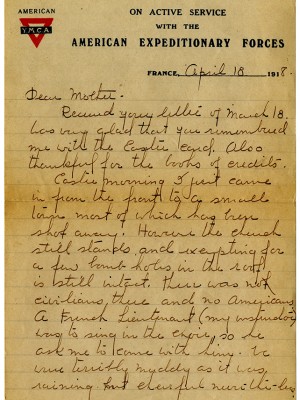 AMERICAN
YMCA
ON ACTIVE SERVICE
WITH THE
AMERICAN EXPEDITIONARY FORCES
FRANCE, April 18 1918.
Dear Mother:
Received your letter of March 18.
Was very glad that you remembered
me with the Easter card. Also
thankful for the books of credits.
Easter morning I just came
in from the front to a small
town most of which has been
shot away. However the church
still stands and excepting for
a few bomb holes in the roof
is still intact. There was not
civilians there and no Americans
A French Lieutenant (my instructor)
was to sing in the choir, so he
ask me to come with him. We
were terribly muddy as it was
raining but cheerful